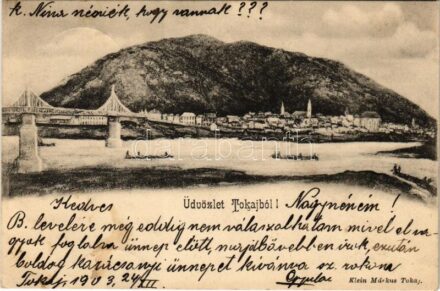 K. Nina nénik, hogy vannak ???
darabanth.com
Üdvözlet Tokajból !
Kedves Nagynéném !
B. levelére még eddig nem válaszolhattam mivel el va-
gyok foglalva ünnep előtt, majd bővebben írok, ezután
boldog karácsonyi ünnepet kívánva sz. rokona
Tokaj, 1903. 24/XII Gyula
Klein Márkus Tokaj.